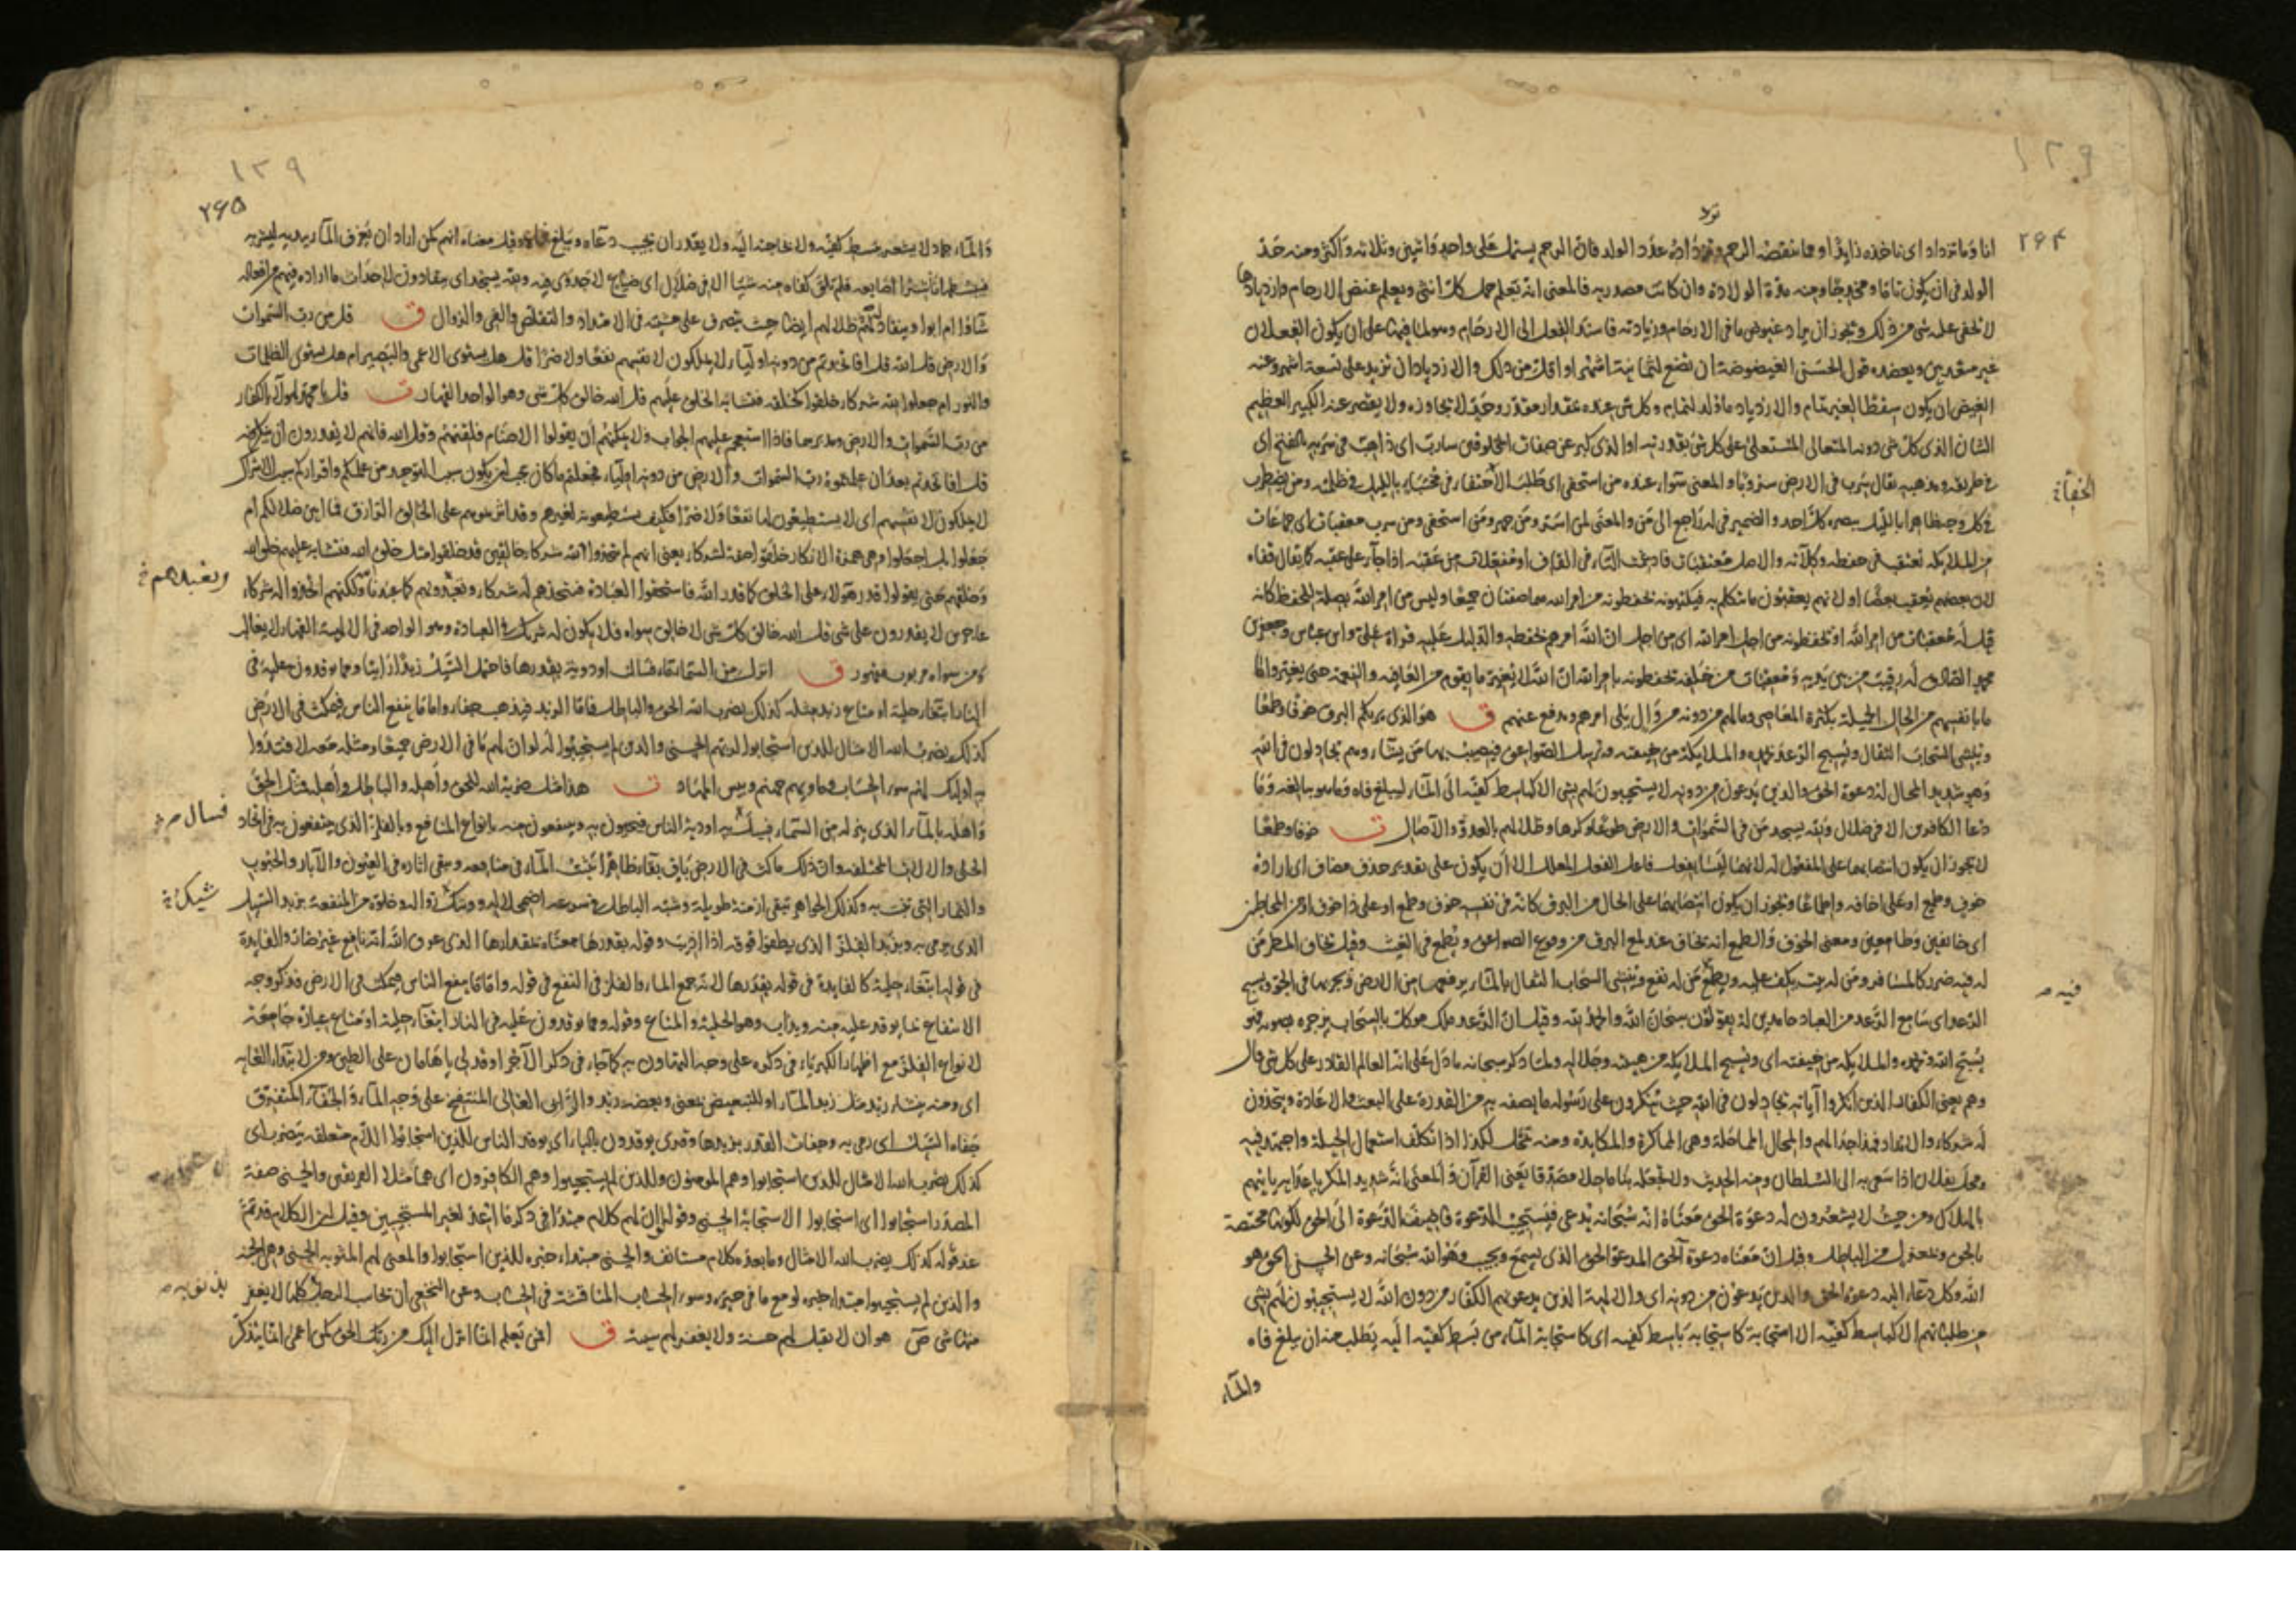 ١٣٩
٢٦٤
انا وما تزداد اى تاخذه زايدًا او مما تنقصه الرحم وتزداده عدد الولد فان الرحم يشتمل على واحد واثنين وثلاثة واكثر ومنه جسد
الولد فى ان يكون تاما ومخدجا ومنه مدة الولادة وان كانت مصدرية فالمعنى انه يعلم حمل كل انثى ويعلم غيض الارحام وازديادها
لا تخفى عليه شى من ذلك ويجوز ان يراد غيوض ما فى الارحام وزيادته فاسند الفعل الى الارحام وهو لما فيها على ان يكون الفعلان
غير متعديين ويعضده قول الحسن الغيضوضة ان تضع لثمانية اشهر او اقل من ذلك والازدياد ان تزيد على تسعة اشهر وعنه
الغيض ان يكون سقطا لغير تمام والازدياد ما ولد لتمام وكل شى عنده بمقدار بقدر وحد لا يجاوزه ولا يقصر عنه الكبير العظيم
الشان الذى كل شى دونه المتعالى المستعلى على كل شى بقدرته او الذى كبر عن صفات المخلوقين سارب اى ذاهب فى سربه بالفتح اى
فى طريقه ومذهبه يقال سرب فى الارض سروبا والمعنى سواء عنده من استخفى اى طلب الاختفاء فى مختباء بالليل فى ظلمته ومن يضطرب
من الملائكة تعتقب فى حفظه وكلاءته والاصل معتقبات فادغمت التاء فى القاف او مفعلات من عقبه اذا جاء على عقبه كما يقال قفاه
لان بعضهم يعقب بعضا او لانهم يعقبون ما يتكلم به فيكتبونه يحفظونه من امر الله هما صفتان جميعا وليس من امر الله بصلة للحفظ كانه
قيل له معقبات من امر الله او يحفظونه من اجل امر الله اى من اجل ان الله امرهم بحفظه والدليل عليه قراءة على وابن عباس وجعفر بن
محمد الصادق له رقيب من بين يديه ومعقبات من خلفه يحفظونه بامر الله ان الله لا يغير ما بقوم من العافية والنعمة حتى يغيروا ما
بانفسهم من الحال الجميلة بكثرة المعاصى وما لهم من دونه من وال يلى امرهم ويدفع عنهم ق هو الذى يريكم البرق خوفا وطمعا
وينشى السحاب الثقال ويسبح الرعد بحمده والملائكة من خيفته ويرسل الصواعق فيصيب بها من يشاء وهم يجادلون فى الله
وهو شديد المحال له دعوة الحق والذين يدعون من دونه لا يستجيبون لهم بشى الا كباسط كفيه الى الماء ليبلغ فاه وما هو ببالغه وما
دعا الكافرين الا فى ضلال ولله يسجد من فى السموات والارض طوعا وكرها وظلالهم بالغدو والاصال ق خوفا وطمعا
لا يجوز ان يكون انتصابهما على المفعول له لانهما ليسا بفعل فاعل الفعل المعلل الا ان يكون على تقدير حذف مضاف اى ارادة
خوف وطمع او على اخافة واطماعا ويجوز ان يكون انتصابهما على الحال من البرق كانه فى نفسه خوف وطمع او على ذا خوف او من المخاطبين
اى خائفين وطامعين ومعنى الخوف والطمع انه يخاف عند لمع البرق من وقوع الصواعق ويطمع فى الغيث وقيل يخاف المطر من
له فيه ضرر كالمسافر ومن له بيت يكف عليه ويطمع من له نفع وينشى السحاب الثقال بالماء يرفعها من الارض ويجريها فى الجو ويسبح
الرعد اى سامع الرعد من العباد حامدين له يقولون سبحان الله والحمد لله وقيل ان الرعد ملك موكل بالسحاب يزجره بصوته فهو
يسبح الله وبحمده والملائكة من خيفته اى ويسبح الملائكة من هيبته وجلاله ولما ذكر سبحانه ما دل على انه العالم القادر على كل شى قال
وهم يعنى الكفار الذين انكروا آياته يجادلون فى الله حيث ينكرون على رسوله ما يصفه به من القدرة على البعث والاعادة ويتخذون
له شركاء والانداد فهذا جدالهم والمحال المماحلة وهى المماكرة والمكايدة ومنه تمحل لكذا اذا تكلف استعمال الحيلة واجتهد فيه
ومحل بفلان اذا سعى به الى السلطان ومنه الحديث ولا تجعله بنا ماحلا مصدقا يعنى القرآن والمعنى انه شديد المكر باعدايه ياتيهم
بالهلاك من حيث لا يشعرون له دعوة الحق معناه انه سبحانه يدعى فيستجيب الدعوة فاضيفت الدعوة الى الحق لكونها مختصة
بالحق وبمعزل من الباطل وقيل ان معناه دعوة الحق المدعو الحق الذى يسمع ويجيب وهو الله سبحانه وعن الحسن الحق هو
الله وكل دعاء اليه دعوة الحق والذين يدعون من دونه اى والالهة الذين يدعونهم الكفار من دون الله لا يستجيبون لهم بشى
من طلباتهم الا كباسط كفيه الا استجابة كاستجابة باسط كفيه اى كاستجابة الماء من بسط كفيه اليه يطلب منه ان يبلغ فاه
والماء
فيه
١٣٩
٢٦٥
والماء جماد لا يشعر ببسط كفيه ولا بحاجته اليه ولا يقدر ان يجيب دعاه ويبلغ فاه وقيل معناه انهم كمن اراد ان يغرف الماء بيديه ليشربه
فبسطهما ناشرا اصابعه فلم تلق كفاه منه شيئا الا فى ضلال اى ضياع لا جدوى فيه ولله يسجد اى ينقادون لاحداث ما اراده فيهم من افعاله
شاؤا ام ابوا وينقاد له ظلالهم ايضا حيث يتصرف على مشيته فى الامتداد والتقلص والفى والزوال ق قل من رب السموات
والارض قل الله قل افاتخذتم من دونه اولياء لا يملكون لانفسهم نفعا ولا ضرا قل هل يستوى الاعمى والبصير ام هل يستوى الظلمات
والنور ام جعلوا لله شركاء خلقوا كخلقه فتشابه الخلق عليهم قل الله خالق كل شى وهو الواحد القهار ق قل يا محمد لهولاء الكفار
من رب السموات والارض ومدبرهما فاذا استعجم عليهم الجواب ولا يمكنهم ان يقولوا الاصنام فلقنهم وقل الله فانهم لا يقدرون ان ينكروه
قل افاتخذتم بعد ان علمتموه رب السموات والارض من دونه اولياء فجعلتم ما كان يجب ان يكون سبب التوحيد من علمكم واقراركم سبب الاشراك
لا يملكون لانفسهم اى لا يستطيعون لها نفعا ولا ضرا فكيف يستطيعونه لغيرهم وقد اثرتموهم على الخالق الرازق فما ابين ضلالكم ام
جعلوا بل اجعلوا وهى همزة الانكار خلقوا صفة لشركاء يعنى انهم لم يتخذوا لله شركاء خالقين قد خلقوا مثل خلق الله فتشابه عليهم خلق الله
وخلقهم حتى يقولوا قدر هؤلاء على الخلق كما قدر الله فاستحقوا العبادة فنتخذهم له شركاء ونعبدهم كما عبدنا ولكنهم اتخذوا له شركاء
عاجزين لا يقدرون على شى قل الله خالق كل شى لا خالق سواه فلا يكون له شريك فى العبادة وهو الواحد فى الالهية القهار لا يغالب
ومن سواه مربوب مقهور ق انزل من السماء ماء فسالت اودية بقدرها فاحتمل السيل زبدا رابيا ومما يوقدون عليه فى
النار ابتغاء حلية او متاع زبد مثله كذلك يضرب الله الحق والباطل فاما الزبد فيذهب جفاء واما ما ينفع الناس فيمكث فى الارض
كذلك يضرب الله الامثال للذين استجابوا لربهم الحسنى والذين لم يستجيبوا له لو ان لهم ما فى الارض جميعا ومثله معه لافتدوا
به اولئك لهم سوء الحساب وماويهم جهنم وبيس المهاد ق هذا مثل ضربه الله للحق واهله والباطل واهله فمثل الحق
واهله بالماء الذى ينزله من السماء فيسيل به اودية الناس فيحيون به وينفعون منه بانواع المنافع وبالفلز الذى ينتفعون به فى اتخاذ
الحلى والالات المختلفة وان ذلك ماكث فى الارض باق بقاء ظاهرا يثبت الماء فى منافعه ويبقى اثاره فى العيون والابار والحبوب
والثمار التى تنبت به وكذلك الجواهر تبقى ازمنة طويلة وشبه الباطل فى سرعة اضمحلاله ووشك زواله وخلوه من المنفعة بزبد السيل
الذى يرمى به وبزبد الفلز الذى يطفوا فوقه اذا اذيب وقوله بقدرها معناه بمقدارها الذى عرف الله انه نافع غير ضار والفايدة
فى قوله ابتغاء حلية كالفايدة فى قوله بقدرها لانه جمع الماء والفلز فى النفع فى قوله واما ما ينفع الناس فيمكث فى الارض فذكر وجه
الانتفاع مما يوقد عليه منه ويذاب وهو الحلية والمتاع وقوله ومما يوقدون عليه فى النار ابتغاء حلية او متاع عبارة جامعة
لانواع الفلز مع اظهار الكبرياء فى ذكره على وجه التهاون به كما جاء فى ذكر الآجر اوقد لى يا هامان على الطين ومن لابتداء الغاية
اى ومنه ينشاء زبد مثل زبد الماء او للتبعيض بمعنى وبعضه زبد والرابى العالى المنتفخ على وجه الماء والجفاء المتفرق
جفاه السيل اى رمى به وجفات القدر بزبدها وقرى يوقدون بالياء اى يوقد الناس للذين استجابوا اللام متعلقة بيضرب اى
كذلك يضرب الله الامثال للذين استجابوا وهم المومنون وللذين لم يستجيبوا وهم الكافرون اى هما مثلا الفريقين والحسنى صفة
لمصدر استجابوا اى استجابوا الاستجابة الحسنى وقوله لو ان لهم كلام مبتدا فى ذكر ما اعد لغير المستجيبين وقيل ان الكلام قد تم
عند قوله كذلك يضرب الله الامثال وما بعده كلام مستانف والحسنى مبتداء خبره للذين استجابوا والمعنى لهم المثوبة الحسنى وهى الجنة
والذين لم يستجيبوا مبتداء خبره لو مع ما فى حيزه وسوء الحساب المناقشة فى الحساب وعن النخعى ان يحاسب الرجل كلها لا يغفر
منها شى ص هو ان لا يقبل لهم حسنة ولا يغفر لهم سيئة ق افمن يعلم انما انزل اليك من ربك الحق كمن اعمى انما يتذكر
فسال